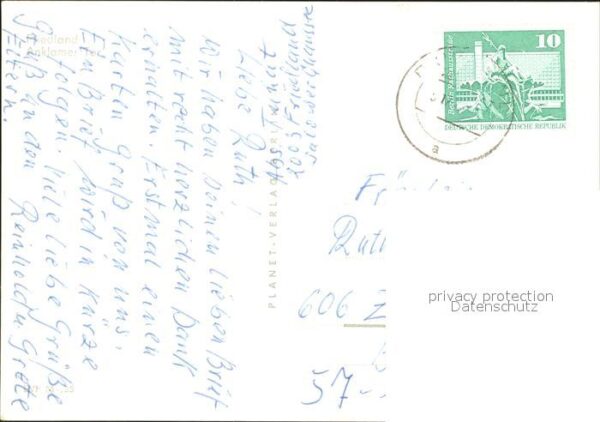 Friedland
Anklamer Tor
Liebe Ruth!
Wir haben Deinen lieben Brief
mit recht herzlichen Dank
erhalten. Erstmal einen
Karten Gruß von uns.
Ein Brief wird in Kürze
folgen. Viele liebe Grüße
Gruß an den Reinhold u Grete
Eltern.
Abs.
2003 Friedland
PLANET-VERLAG BERLIN
10
Berlin Rathausstraße
DEUTSCHE DEMOKRATISCHE REPUBLIK
a
Fräulein
Rut
606 Z
57-
privacy protection
Datenschutz